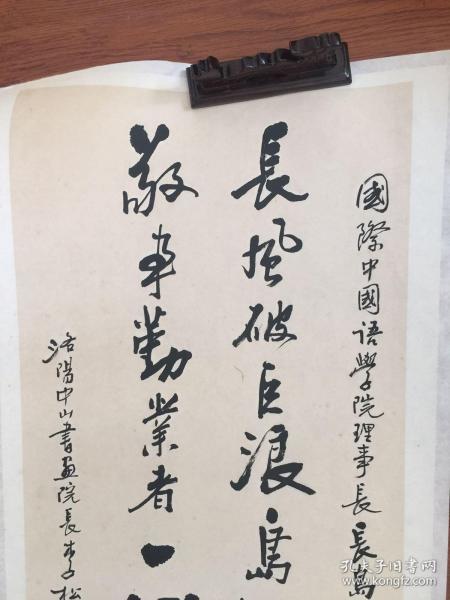 國際中國语學院理事長長島
長風破巨浪島
敬事勤業者一
洛陽中山書画院長李松
孔夫子旧书网